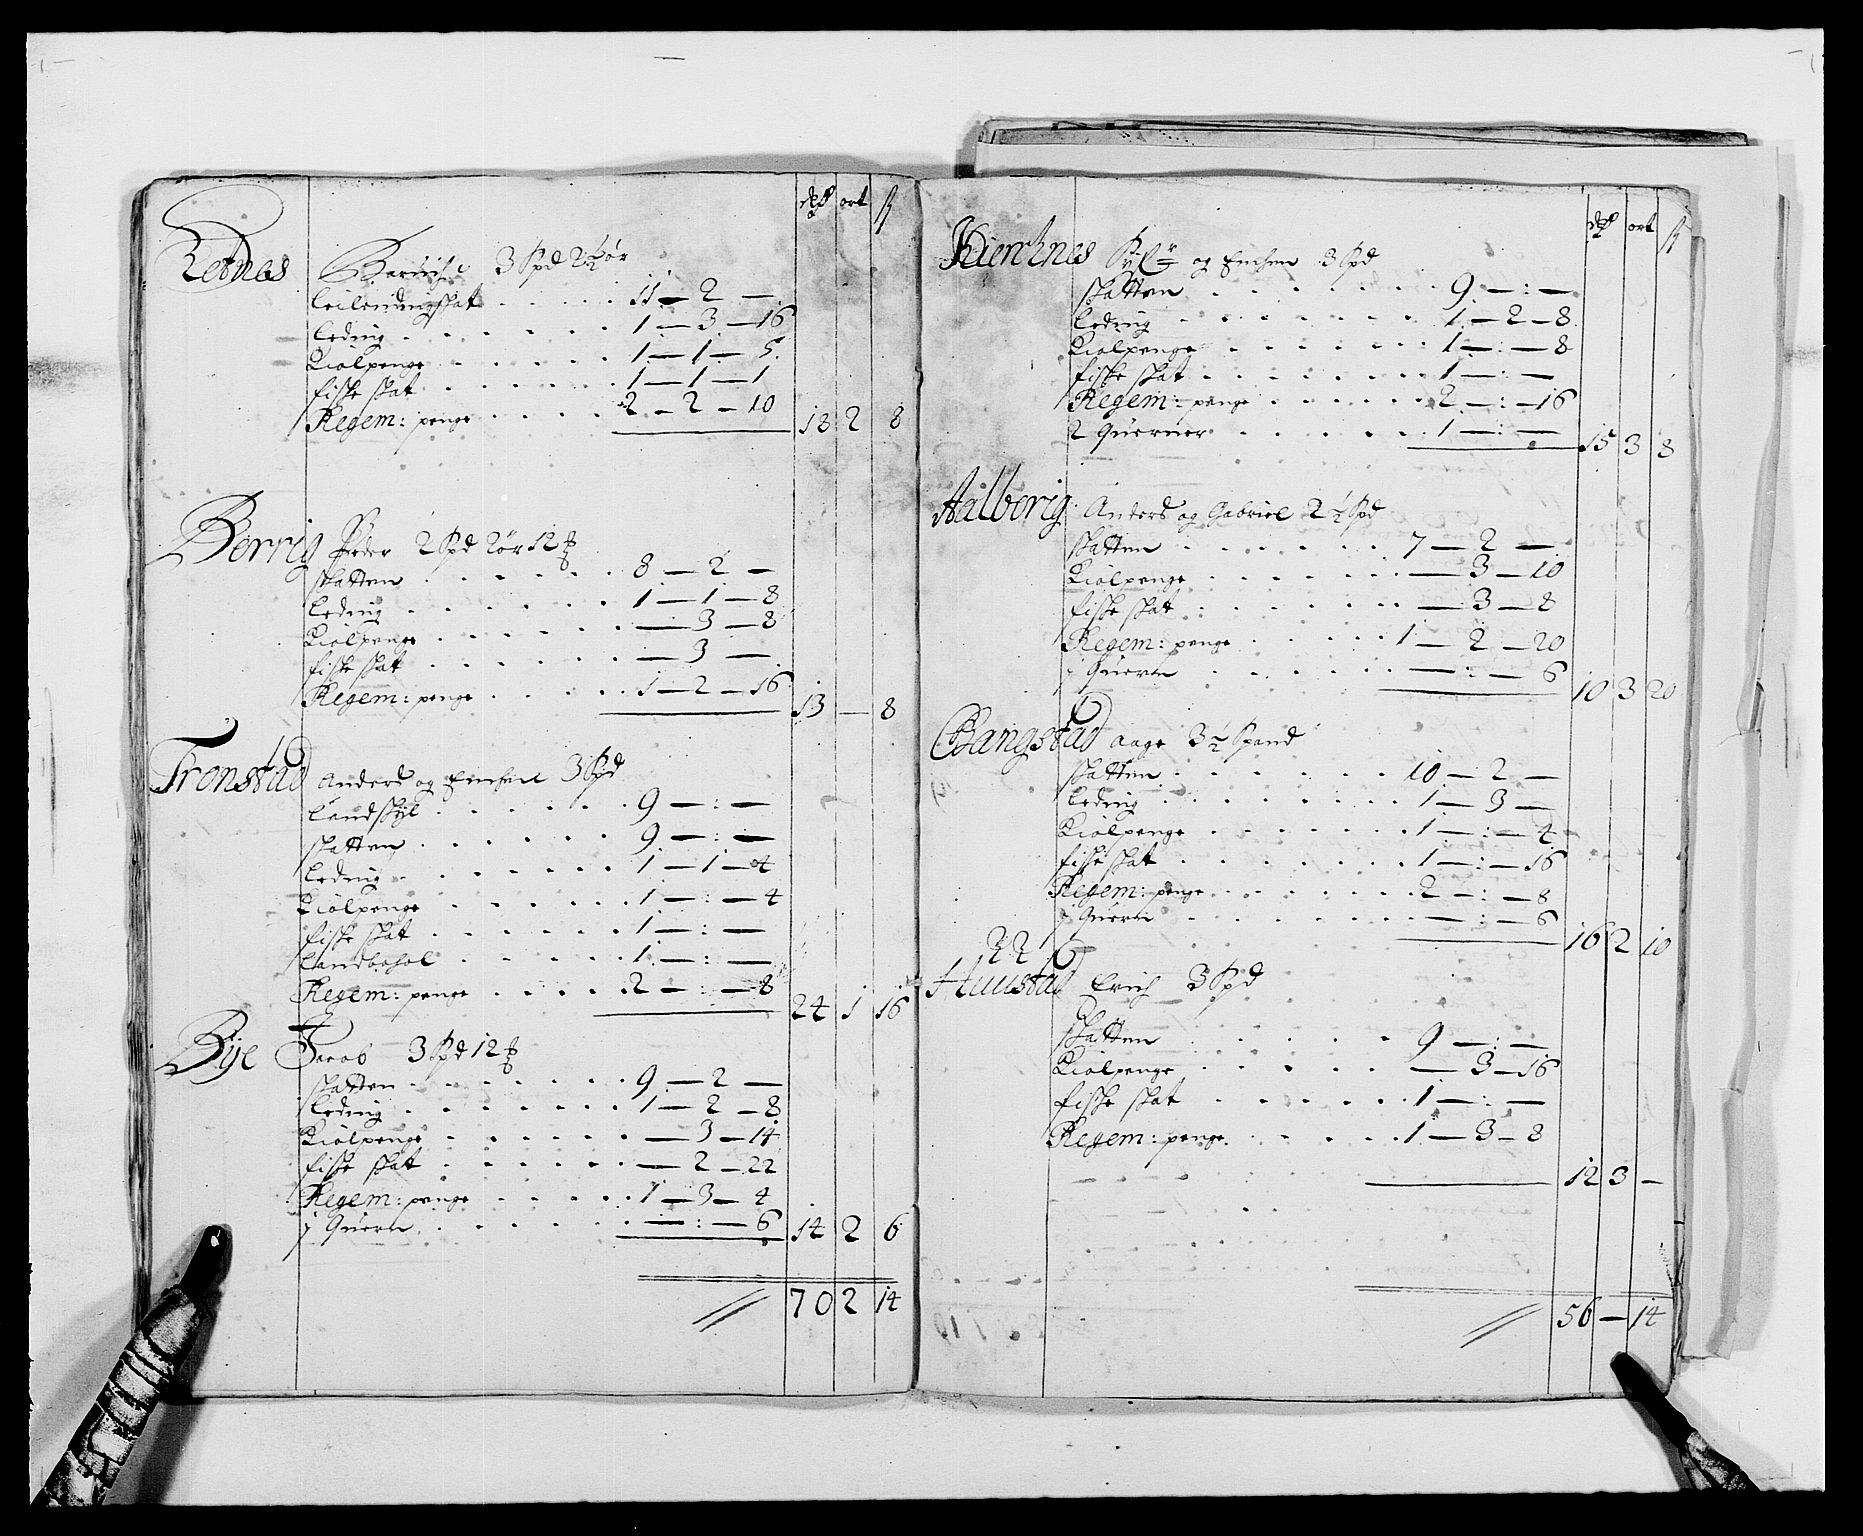 dlr ort ß
Retnes 3 Spd 2½ ør
leilendingskat 11 — 2 —
leding 1 — 3 — 16
Kiølpenge 1 — 1 — 5
fiske skat 1 — 1 — 1
Regem: penge 2 — 2 — 10 18 2 8
Berrig Peder 2 Spd 2 ør 12
skatten 8 — 2 —
leding 1 — 1 — 8
Kiølpenge — 3 — 8
fiske skat — 3 —
Regem: penge 1 — 2 — 16 13 — 8
Tronstad Anders og Enchen 3 Spd
landskyl 9 — : —
skatten 9 — : —
leding 1 — 1 — 4
Kiølpenge 1 — : — 4
fiske skat 1 — : —
landbohol 1 — : —
Regem: penge 2 — : — 8 24 1 16
Bye Jacob 3 Spd 12
skatten 9 — 2 —
leding 1 — 2 — 8
Kiølpenge — 3 — 14
fiske skat — 2 — 22
Regem: penge 1 — 3 — 4
j Quern — : — 6 14 2 6
// 70 2 14
dlr ort ß
og Enchen 3 Spd
skatten 9 — : —
leding 1 — 2 — 8
Kiølpenge 1 — : — 8
fiske skat 1 — : —
Regem: penge 2 — : — 16
2 Querner 1 — : — 15 3 8
Aalberig Anders og Gabriel 2½ Spd
skatten 7 — 2 —
Kiølpenge — 3 — 10
fiske skat — 3 — 8
Regem: penge 1 — 2 — 20
j Quern — : — 6 10 3 20
Bangstad Aage 3½ Spand
skatten 10 — 2 —
leding 1 — 3 —
Kiølpenge 1 — : — 4
fiske skat 1 — : — 16
Regem: penge 2 — : — 8
j Quern — : — 6 16 2 10
Huustad Erich 3 Spd
skatten 9 — : —
Kiølpenge — 3 — 16
fiske skat 1 — : —
Regem: penge 1 — 3 — 8
12 3 —
// 56 — 14